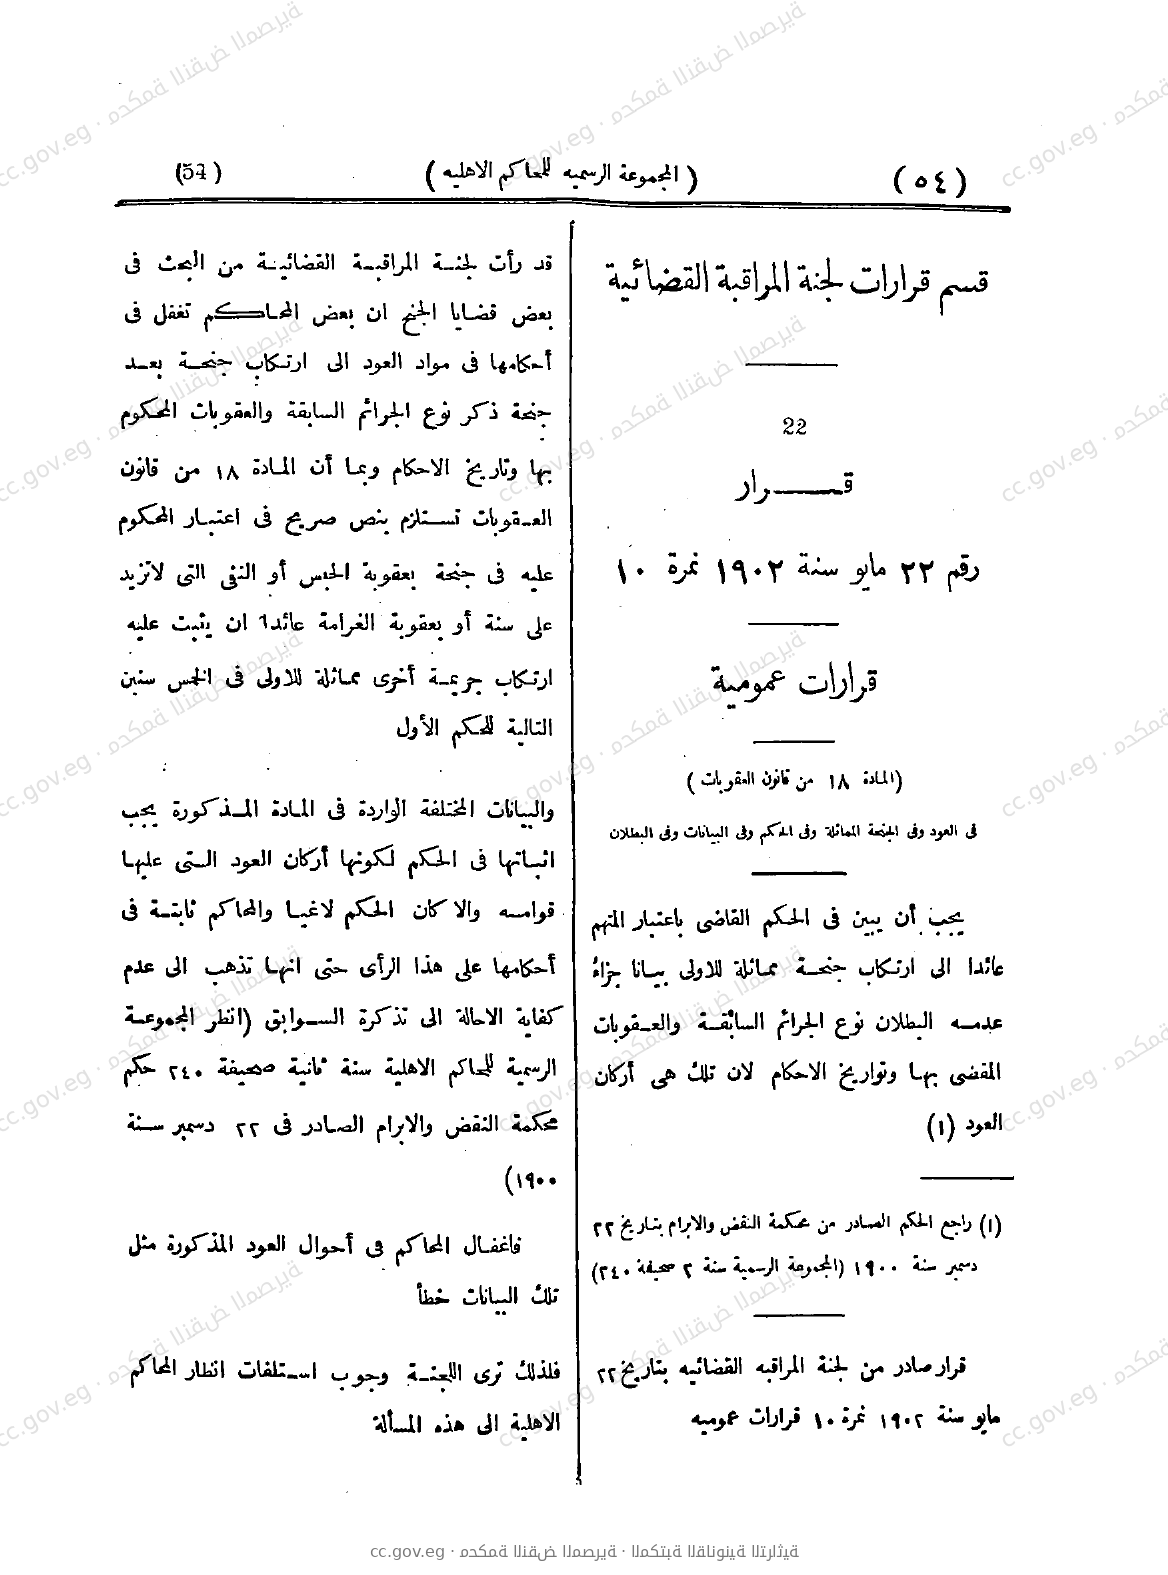 (54) ( المجموعة الرسميه للمحاكم الاهليه ) ( ٥٤ )
قسم قرارات لجنة المراقبة القضائية
22
قــــرار
رقم ٢٢ مايو سنة ١٩٠٢ نمرة ١٠
قرارات عمومية
(المادة ١٨ من قانون العقوبات )
فى العود وفى الجنحة المماثلة وفى الحكم وفى البيانات وفى البطلان
يجب أن يبين فى الحكم القاضى باعتبار المتهم
عائدا الى ارتكاب جنحـة مماثلة للاولى بيـانا جزاءُ
عدمـه البطلان نوع الجرائم السابقـة والعـقوبات
المقضى بهـا وتواريخ الاحكام لان تلك هى أركان
العود (١)
(١) راجع الحكم الصادر من محكمة النقض والابرام بتـاريخ ٢٢
دسمبر سنة ١٩٠٠ (المجموعة الرسمية سنة ٢ صحيفة ٢٤٠)
قرار صادر من لجنة المراقبه القضائيه بتاريخ ٢٢
مايو سنة ١٩٠٢ نمرة ١٠ قرارات عموميه
قد رأت لجنـة المراقبـة القضائيـة من البحث فى
بعض قضـايا الجنح ان بعض المحـاكم تغفل فى
أحكامها فى مواد العود الى ارتكاب جنحـة بعـد
جنحة ذكر نوع الجرائم السابقة والعقوبات المحكوم
بها وتاريخ الاحكام وبمـا أن المـادة ١٨ من قانون
العـقوبات تسـتلزم بنص صريح فى اعتبـار المحكوم
عليه فى جنحة بعقوبة الحبس أو النفى التى لاتزيد
على سنة أو بعقوبة الغرامة عائدا ان يثبت عليه
ارتكاب جريمـة أخرى مماثلة للاولى فى الخمس سنين
التالية للحكم الأول
والبيانات المختلفة الواردة فى المـادة المـذكورة يجب
اثبـاتها فى الحكم لكونها أركان العود الـتى عليهـا
قوامـه والا كان الحكم لاغيـا والمحاكم ثابتـة فى
أحكامها على هذا الرأى حتى انهـا تذهب الى عدم
كفاية الاحالة الى تذكرة السـوابق (انظر المجموعـة
الرسمية للمحاكم الاهلية سنة ثانية صحيفة ٢٤٠ حكم
محكمة النقض والابرام الصـادر فى ٢٢ دسمبر سـنة
١٩٠٠)
فاغفـال المحاكم فى أحوال العود المذكورة مثل
تلك البيانات خطأ
فلذلك ترى اللجنـة وجوب اسـتلفات انظار المحاكم
الاهلية الى هذه المسألة
cc.gov.eg · محكمة النقض المصرية · المكتبة القانونية التراثية